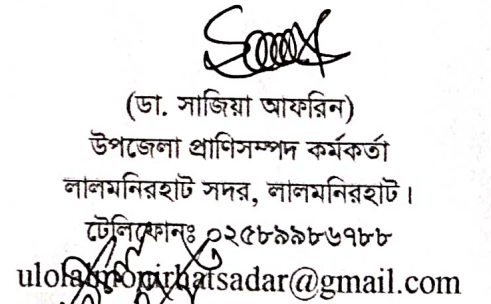 (ডা. সাজিয়া আফরিন)
উপজেলা প্রাণিসম্পদ কর্মকর্তা
লালমনিরহাট সদর, লালমনিরহাট।
টেলিফোনঃ ০২৫৮৯৯৮৬৭৮৮
ulolalmonirhatsadar@gmail.com